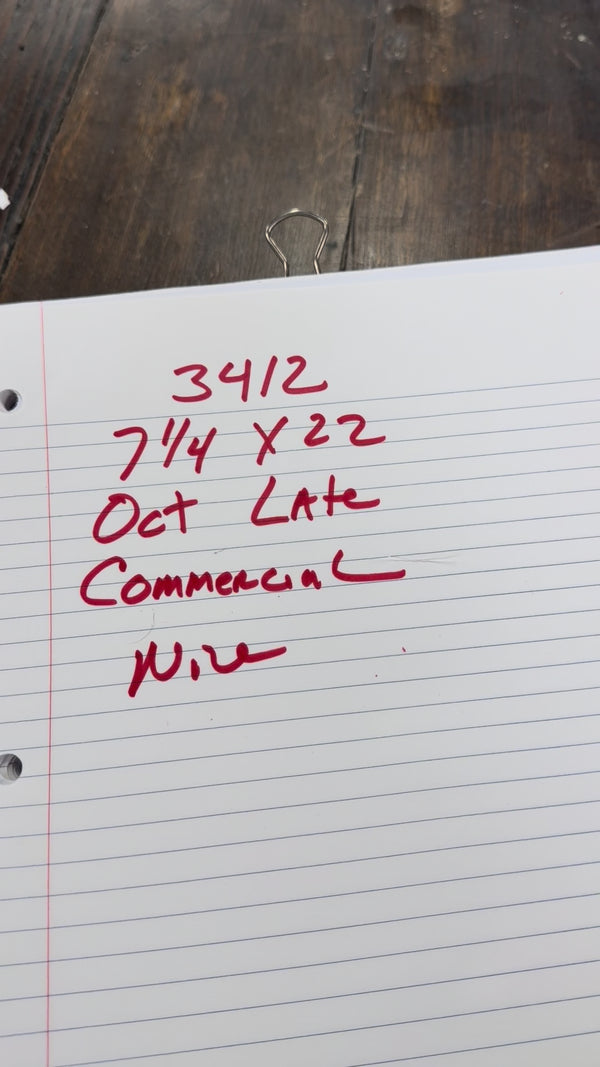 3412
7 1/4 X 22
Oct Late
Commercial